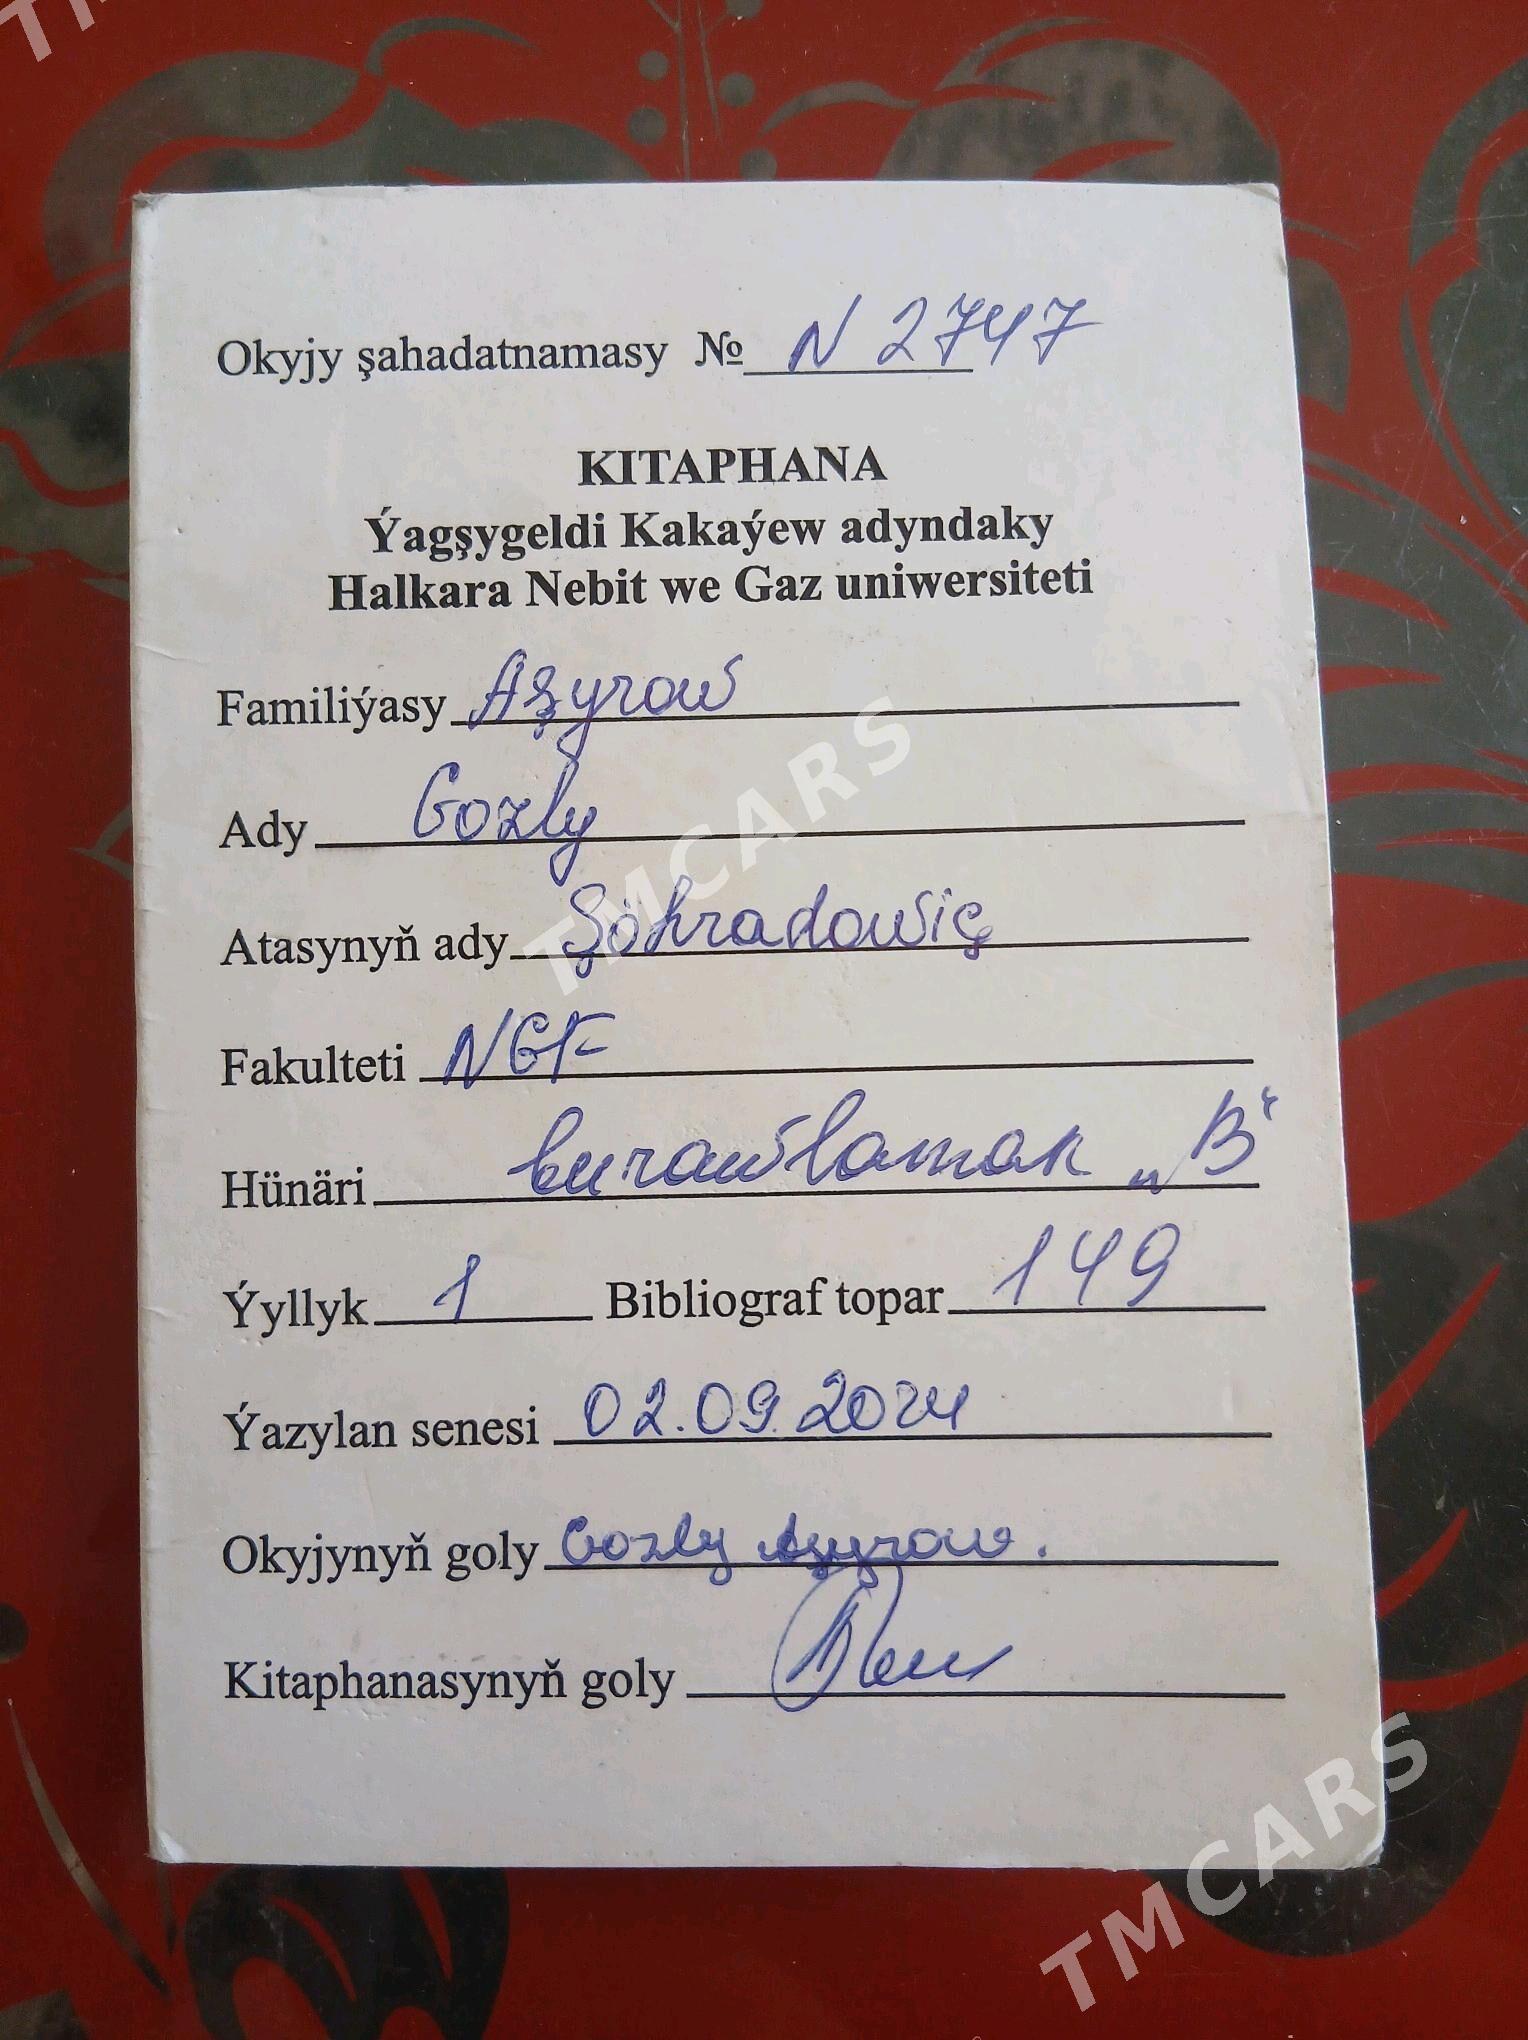 Okyjy şahadatnamasy № N 2747
KITAPHANA
Ýagşygeldi Kakaýew adyndaky
Halkara Nebit we Gaz uniwersiteti
Familiýasy Aşyrow
Ady Gozly
Atasynyň ady Şöhradowiç
Fakulteti NGF
Hünäri burawlamak „B“
Ýyllyk 1 Bibliograf topar 149
Ýazylan senesi 02.09.2024
Okyjynyň goly Gozly Aşyrow.
Kitaphanasynyň goly
TMCARS
TMCARS